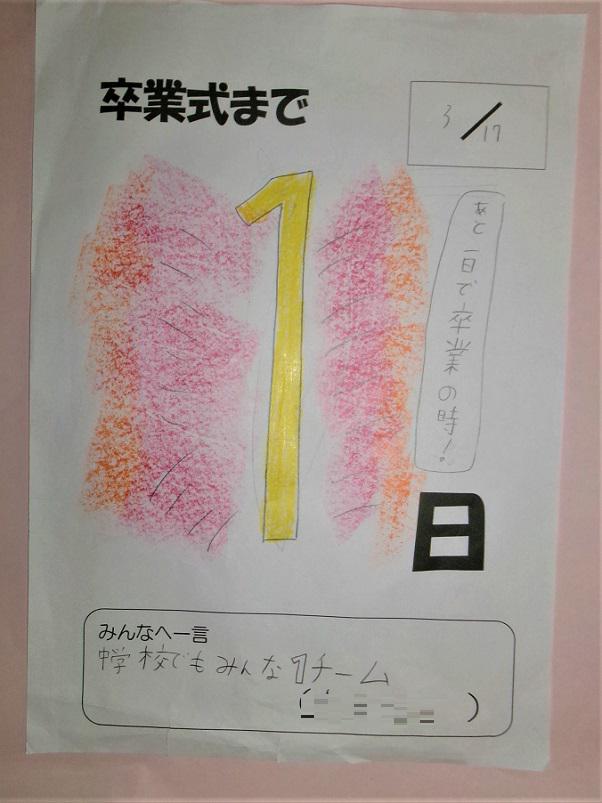 卒業式まで
3/17
1
あと一日で卒業の時!
日
みんなへ一言
中学校でもみんな1チーム
(        )